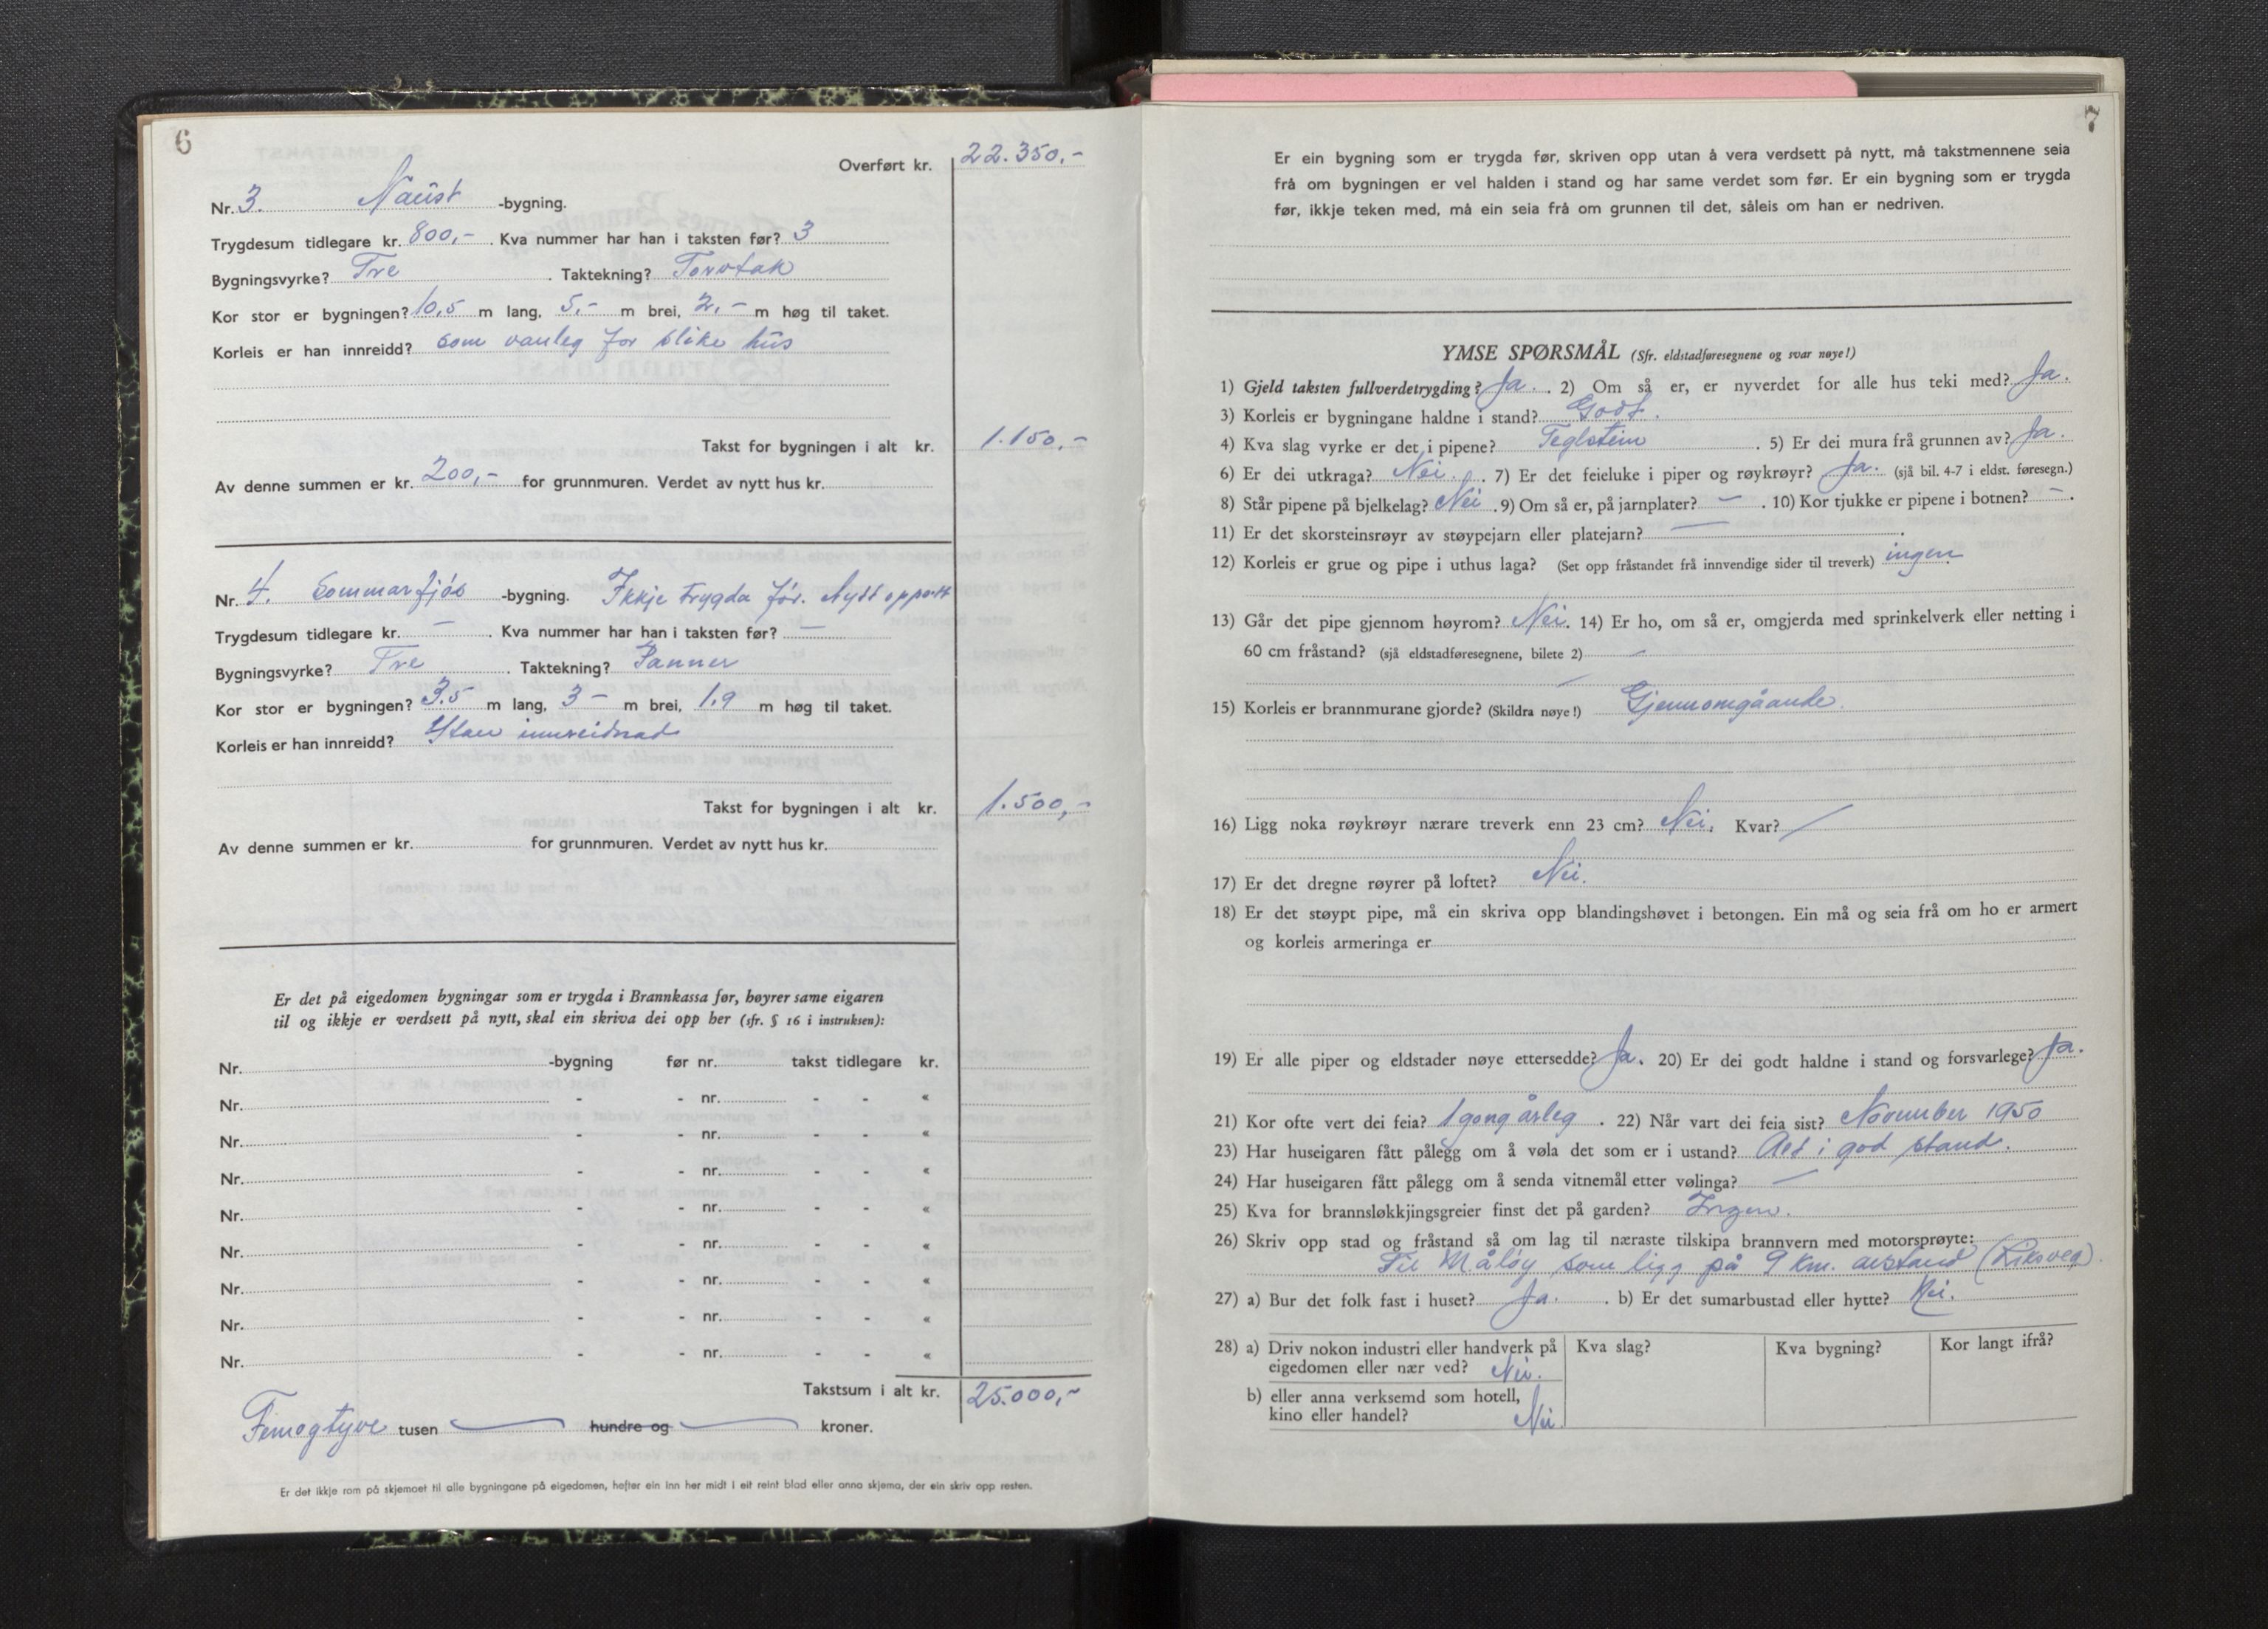 6
Overført kr. 22.350,-
Nr. 3. Naust -bygning.
Trygdesum tidlegare kr. 800,- . Kva nummer har han i taksten før? 3
Bygningsvyrke? Tre . Taktekning? Torvtak
Kor stor er bygningen? 10,5 m lang, 5,- m brei, 2,- m høg til taket.
Korleis er han innreidd? som vanleg for slike hus
Takst for bygningen i alt kr. 1.150,-
Av denne summen er kr. 200,- for grunnmuren. Verdet av nytt hus kr.
Nr. 4. Sommarfjøs -bygning. Ikkje trygda før. Nytt oppatt
Trygdesum tidlegare kr. — . Kva nummer har han i taksten før? —
Bygningsvyrke? Tre . Taktekning? Panner
Kor stor er bygningen? 3.5 m lang, 3 — m brei, 1.9 m høg til taket.
Korleis er han innreidd? Utan innreidnad
Takst for bygningen i alt kr. 1.500,-
Av denne summen er kr. for grunnmuren. Verdet av nytt hus kr.
Er det på eigedomen bygningar som er trygda i Brannkassa før, høyrer same eigaren
til og ikkje er verdsett på nytt, skal ein skriva dei opp her (sfr. § 16 i instruksen):
Nr. -bygning før nr. takst tidlegare kr.
Nr. - - nr. - - «
Nr. - - nr. - - «
Nr. - - nr. - - «
Nr. - - nr. - - «
Nr. - - nr. - - «
Nr. - - nr. - - «
Nr. - - nr. - - «
Nr. - - nr. - - «
Takstsum i alt kr. 25.000,-
Femogtyve tusen — hundre og — kroner.
Er det ikkje rom på skjemaet til alle bygningane på eigedomen, hefter ein inn her midt i eit reint blad eller anna skjema, der ein skriv opp resten.
7
Er ein bygning som er trygda før, skriven opp utan å vera verdsett på nytt, må takstmennene seia
frå om bygningen er vel halden i stand og har same verdet som før. Er ein bygning som er trygda
før, ikkje teken med, må ein seia frå om grunnen til det, såleis om han er nedriven.
YMSE SPØRSMÅL (Sfr. eldstadføresegnene og svar nøye!)
1) Gjeld taksten fullverdetrygding? Ja. . 2) Om så er, er nyverdet for alle hus teki med? Ja.
3) Korleis er bygningane haldne i stand? Godt.
4) Kva slag vyrke er det i pipene? Teglstein . 5) Er dei mura frå grunnen av? Ja.
6) Er dei utkraga? Nei. . 7) Er det feieluke i piper og røykrøyr? Ja. (sjå bil. 4-7 i eldst. føresegn.)
8) Står pipene på bjelkelag? Nei . 9) Om så er, på jarnplater? — . 10) Kor tjukke er pipene i botnen? — .
11) Er det skorsteinsrøyr av støypejarn eller platejarn? — .
12) Korleis er grue og pipe i uthus laga? (Set opp fråstandet frå innvendige sider til treverk) ingen
13) Går det pipe gjennom høyrom? Nei. 14) Er ho, om så er, omgjerda med sprinkelverk eller netting i
60 cm fråstand? (sjå eldstadføresegnene, bilete 2) —
15) Korleis er brannmurane gjorde? (Skildra nøye!) Gjennomgåande.
16) Ligg noka røykrøyr nærare treverk enn 23 cm? Nei. Kvar? /
17) Er det dregne røyrer på loftet? Nei.
18) Er det støypt pipe, må ein skriva opp blandingshøvet i betongen. Ein må og seia frå om ho er armert
og korleis armeringa er
19) Er alle piper og eldstader nøye ettersedde? Ja. 20) Er dei godt haldne i stand og forsvarlege? Ja.
21) Kor ofte vert dei feia? 1 gong årleg . 22) Når vart dei feia sist? November 1950
23) Har huseigaren fått pålegg om å vøla det som er i ustand? Alt i god stand.
24) Har huseigaren fått pålegg om å senda vitnemål etter vølinga? —
25) Kva for brannsløkkjingsgreier finst det på garden? Ingen.
26) Skriv opp stad og fråstand så om lag til næraste tilskipa brannvern med motorsprøyte:
Til Måløy som ligg på 9 km. avstand (Riksveg).
27) a) Bur det folk fast i huset? Ja. . b) Er det sumarbustad eller hytte? Nei.
28) a) Driv nokon industri eller handverk på eigedomen eller nær ved? Nei. Kva slag? Kva bygning? Kor langt ifrå?
b) eller anna verksemd som hotell,
kino eller handel? Nei.